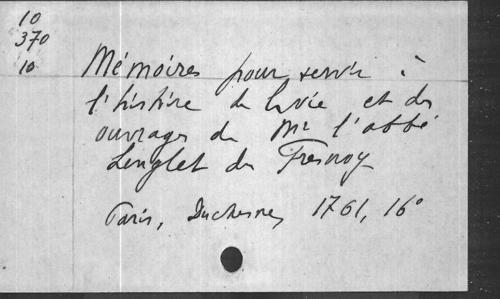 10
370
10
Mémoires pour servir à
l'histoire de la vie et des
ouvrages de Mr l'abbé
Lenglet du Fresnoy
Paris, Duchesne, 1761, 16°